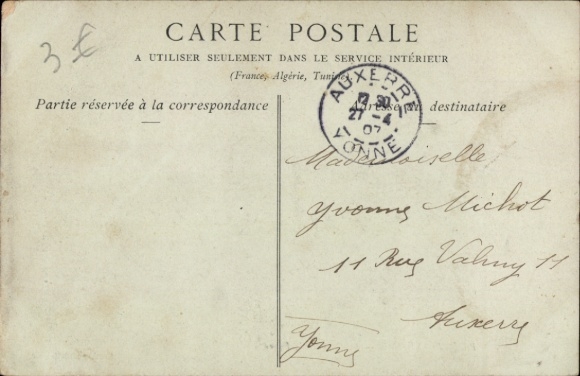 3 €
CARTE POSTALE
A UTILISER SEULEMENT DANS LE SERVICE INTÉRIEUR
(France, Algérie, Tunisie)
Partie réservée à la correspondance
Adresse du destinataire
AUXERRE
27 - 4
07
YONNE
Mademoiselle
Yvonne Michot
11 Rue Valmy 11
Auxerre
Yonne